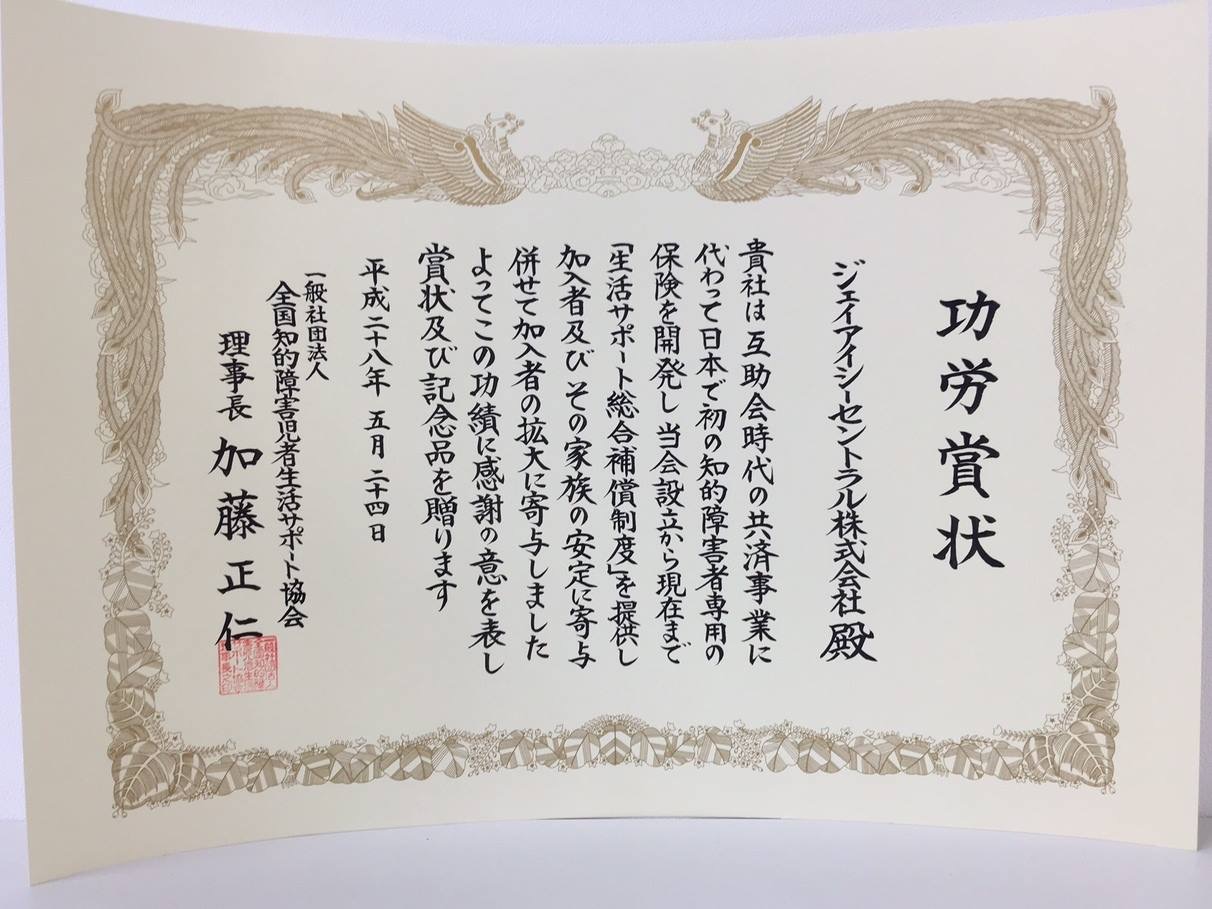 功労賞状
ジェイアイシーセントラル株式会社殿
貴社は互助会時代の共済事業に
代わって日本で初の知的障害者専用の
保険を開発し当会設立から現在まで
「生活サポート総合補償制度」を提供し
加入者及びその家族の安定に寄与
併せて加入者の拡大に寄与しました
よってこの功績に感謝の意を表し
賞状及び記念品を贈ります
平成二十八年 五月 二十四日
一般社団法人
全国知的障害児者生活サポート協会
理事長 加藤正仁